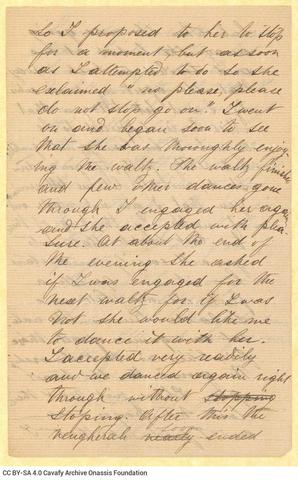 So I proposed to her to stop
for a moment, but as soon
as I attempted to do so she
exclaimed "no please, please
do not stop go on". I went
on and began soon to see
that she was thoroughly enjoy
ing the waltz. The waltz finished
and few other dances gone
through I engaged her again
and she accepted with plea
sure. At about the end of
the evening she asked
if I was engaged for the
next waltz for if I was
not she would like me
to dance it with her.
I accepted very readily
and we danced again right
through without stopping
stoping. After this the
soon
nearly ended
CC BY-SA 4.0 Cavafy Archive Onassis Foundation